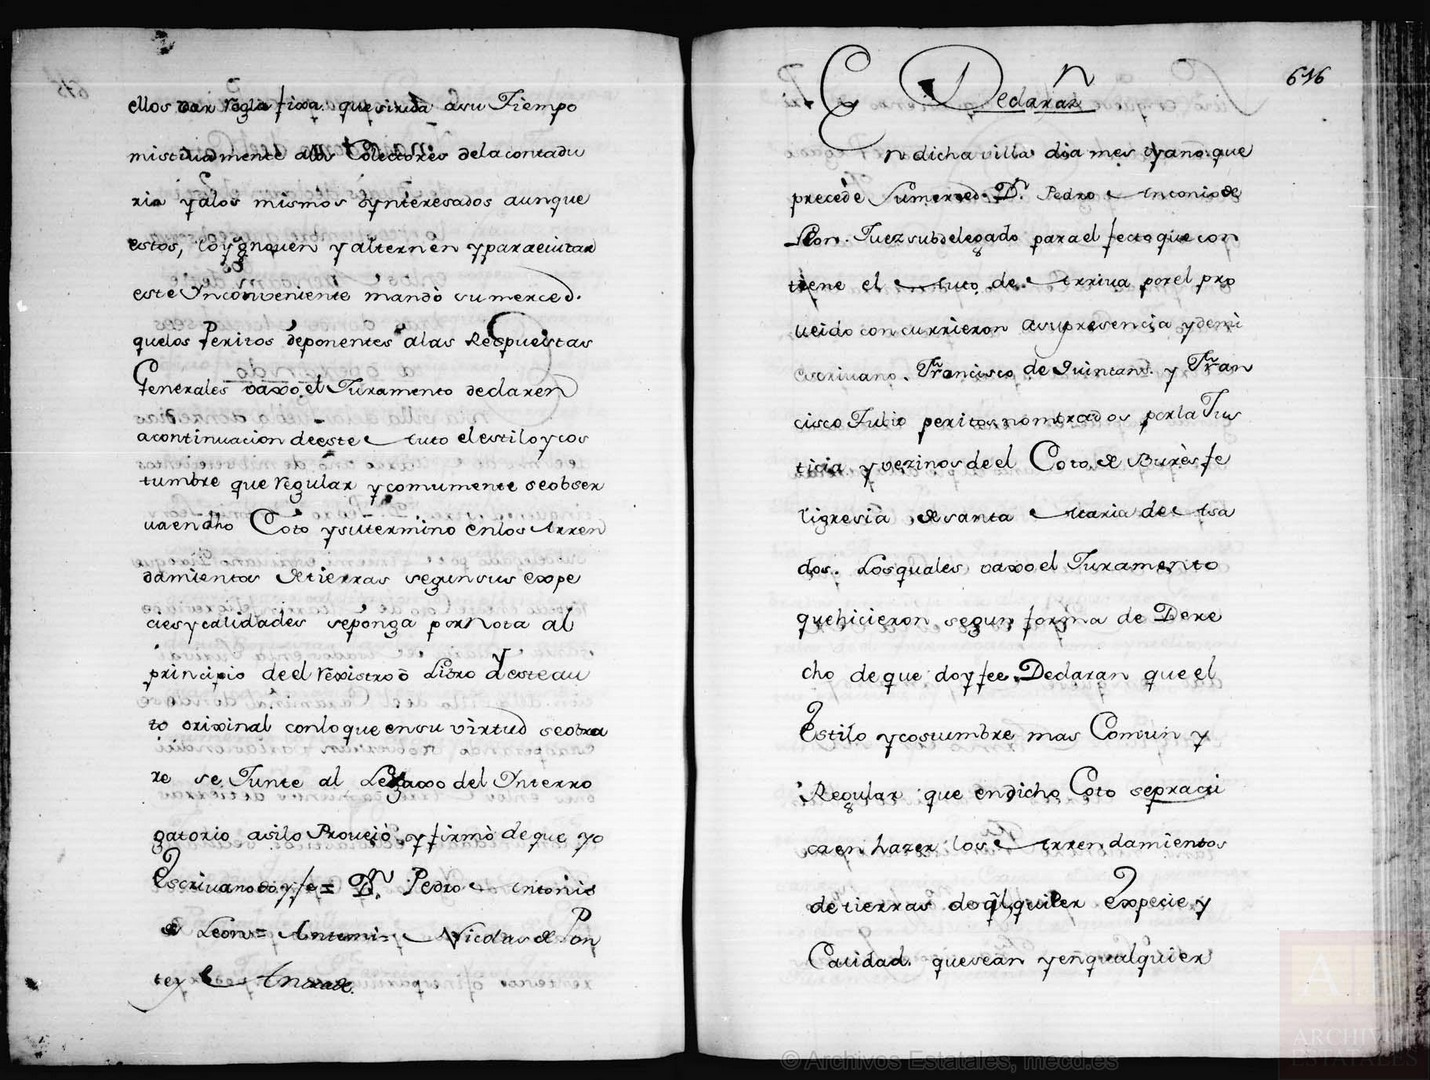 ellos dar regla fixa que sirva a su Tiempo
mistivamente a los Colectores de la contadu
ria y a los mismos Ynteresados aunque
estos, lo ygnoquen y alternen y para evitar
este Ynconveniente mandò su merced.
que los Peritos deponentes a las Respuestas
Generales vaxo el Juramento declaren
a continuacion de este Auto el estilo y cos
tumbre que regular y comunmente se obser
va en dho Coto y su termino en los Arren
damientos de tierras segun sus expe
cies y calidades se ponga por Nota al
principio de el rexistro ô Libro y este au
to orixinal con lo que en su virtud se obra
re se Junte al Legaxo del Ynterro
gatorio asi lo Proveiò, y firmò de que yo
Escrivano doy fe = Dn. Pedro Antonio
de Leon = Antemi = Nicolas de Pon
te y Andrade.
Declaran
616
En dicha villa dia mes y ano que
precede Sumerced Dn. Pedro Antonio de
Leon. Juez subdelegado para el fecto que con
tiene el Auto de Arriva por el pro
veido concurrieron a su presencia y de mi
escrivano. Francisco de Quintans. y Fran
cisco Julio peritos nombrados por la Jus
ticia y vezinos de el Coto de Burès fe
ligresia de santa Maria de Asa
dos. Los quales vaxo el Juramento
que hicieron segun forma de Dere
cho de que doy fee, Declaran que el
Estilo y costumbre mas Comun y
Regular que en dicho Coto se practi
ca en hazer los Arrendamientos
de tierras de qlquier Expecie y
Calidad que sean y en qualquier
© Archivos Estatales, mecd.es
ARCHIVOS
ESTATALES